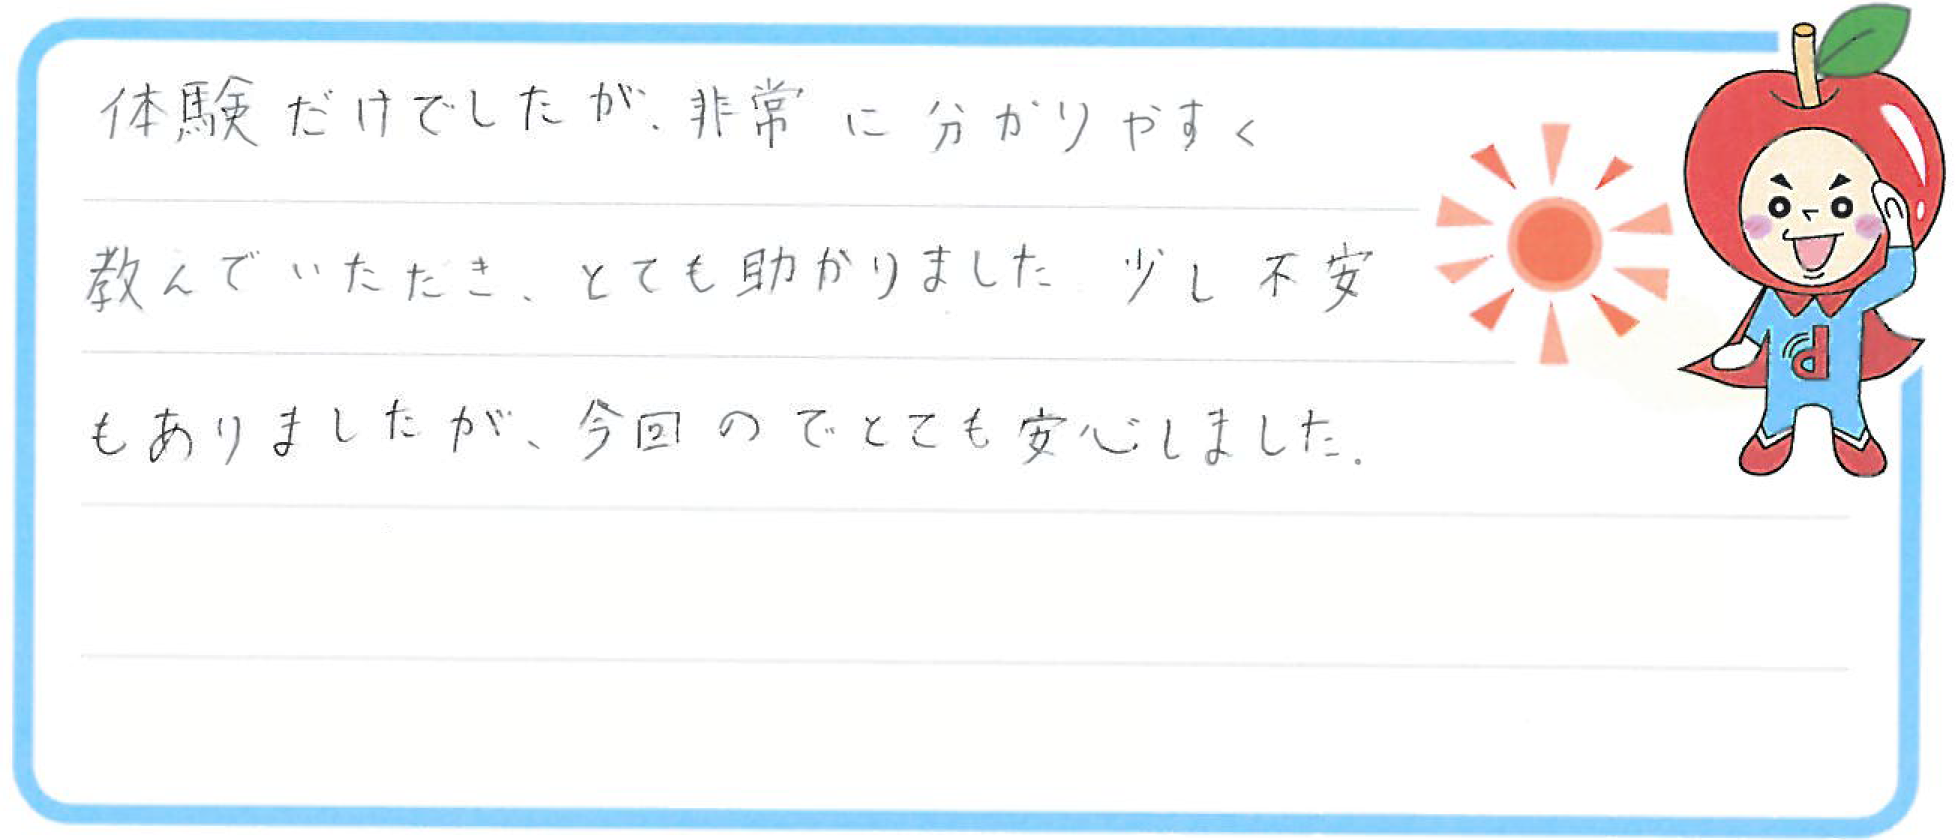 体験だけでしたが、非常に分かりやすく
教んでいたたき、とても助かりました 少し不安
もありましたが、今回のでとても安心しました.
d